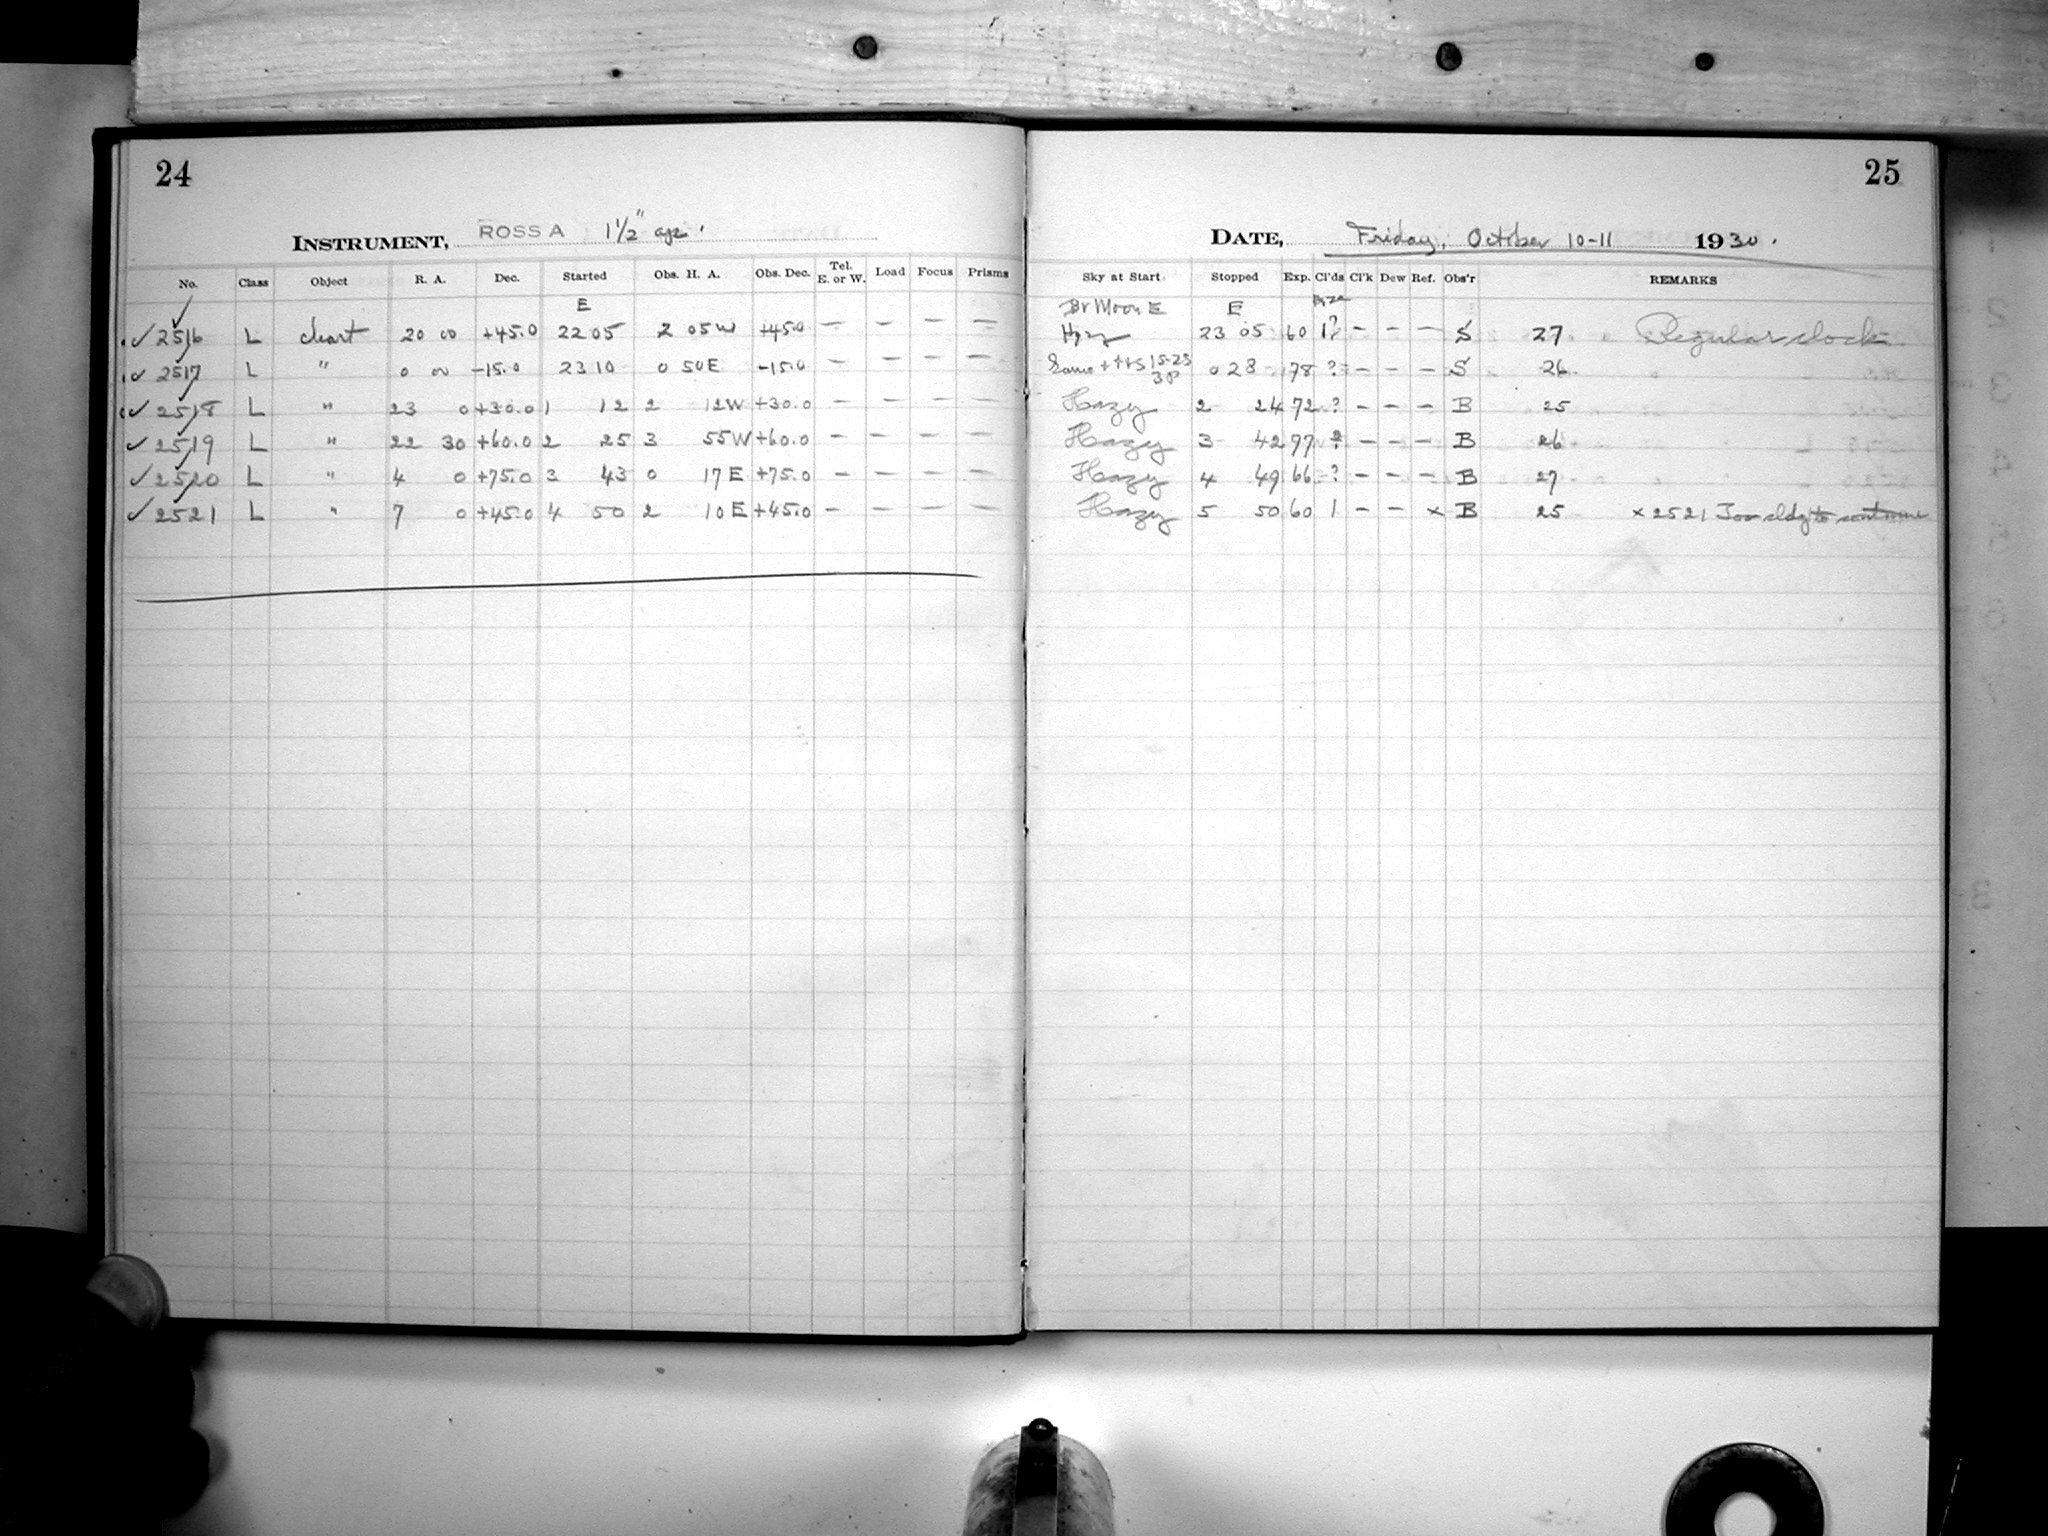 24
INSTRUMENT, ROSS A 1½" ap.
No. Class Object R. A. Dec. Started Obs. H. A. Obs. Dec. Tel. E. or W. Load Focus Prisms
E
✓ 2516 L chart 20 00 +45.0 22 05 2 05 W +45.0 — — — —
✓ 2517 L " 0 00 -15.0 23 10 0 50 E -15.0 — — — —
✓ 2518 L " 23 0 +30.0 1 12 2 12 W +30.0 — — — —
✓ 2519 L " 22 30 +60.0 2 25 3 55 W +60.0 — — — —
✓ 2520 L " 4 0 +75.0 3 43 0 17 E +75.0 — — — —
✓ 2521 L " 7 0 +45.0 4 50 2 10 E +45.0 — — — —
25
DATE, Friday, October 10-11 1930.
Sky at Start Stopped Exp. Cl'ds Cl'k Dew Ref. Obs'r REMARKS
Br Moon E E
Hazy 23 05 60 1? — — — S 27 Regular clock
Same 0 28 78 ? — — — S 26
Hazy 2 24 72 ? — — — B 25
Hazy 3 42 97 ? — — — B 26
Hazy 4 49 66 ? — — — B 27
Hazy 5 50 60 1 — — x B 25 x 2521 Too cldy to continue